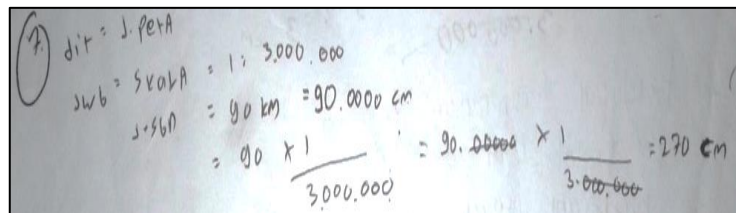 7. dit = J. PetA
Jwb = SkalA = 1 : 3.000.000
J. SbN = 90 km = 90.0000 cm
= 90 x 1 / 3.000.000 = 90.00000 x 1 / 3.000.000 = 270 cm